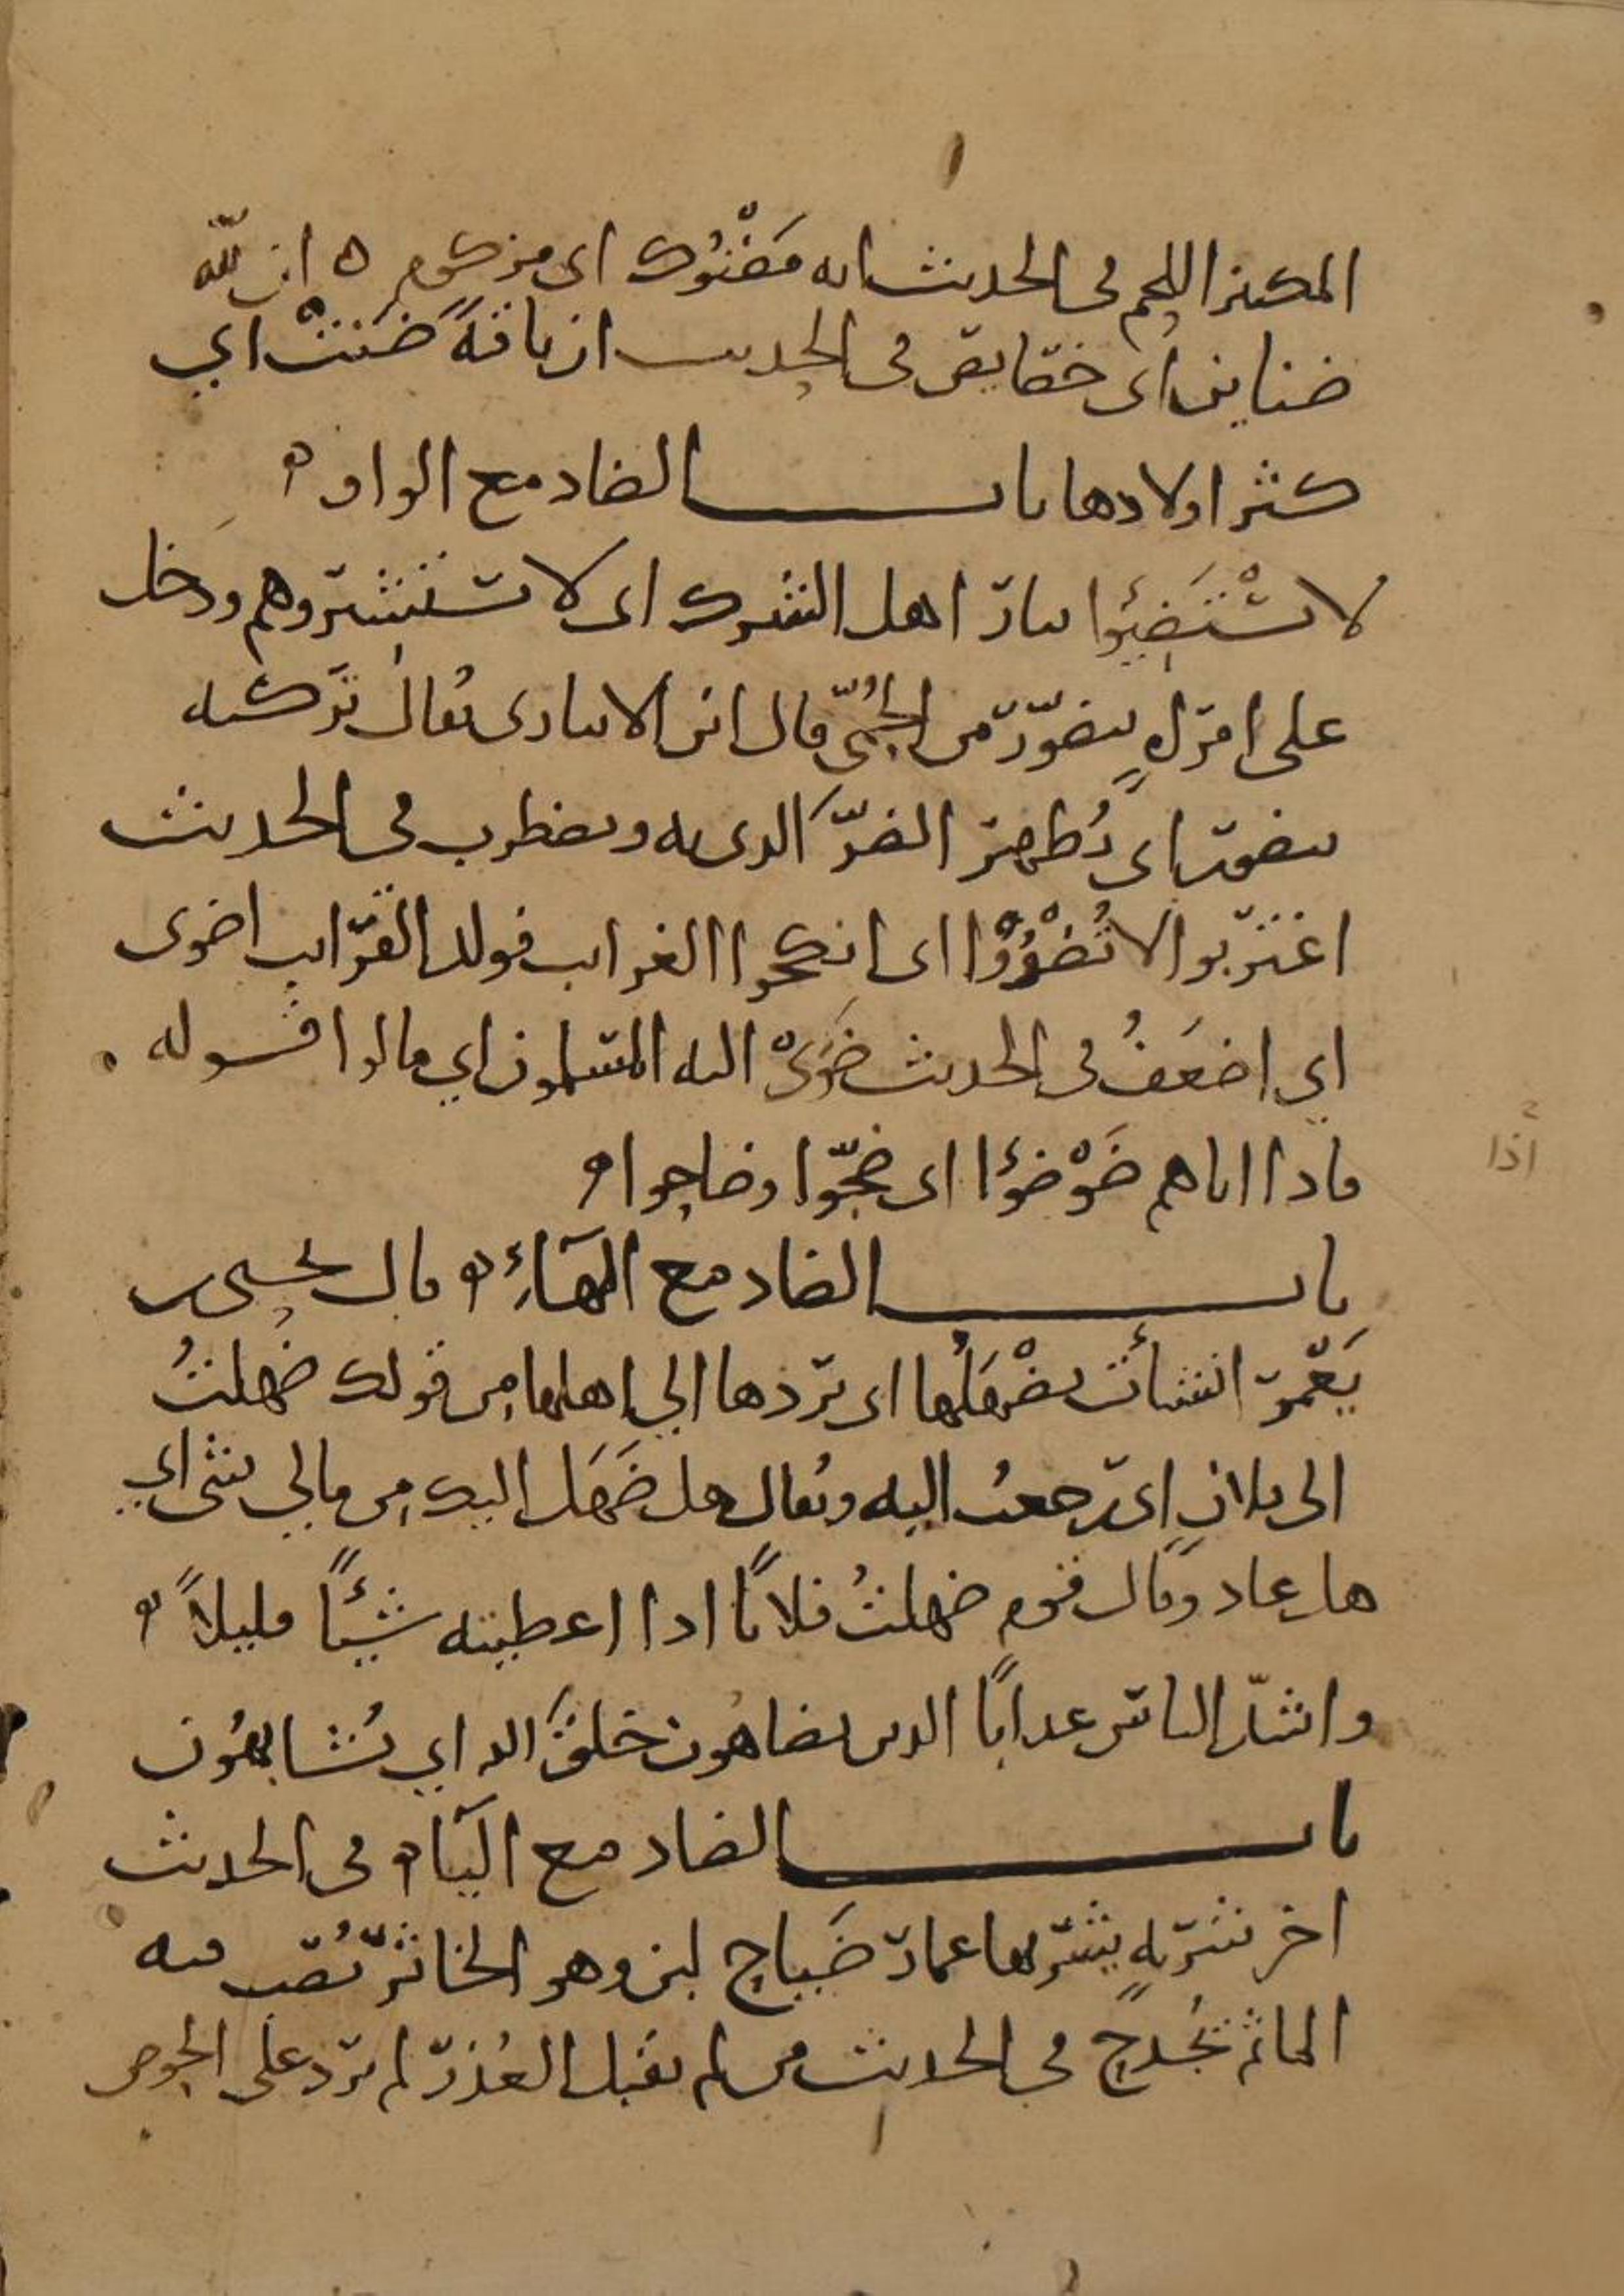 المكنز اللحم فى الحديث انه مَضْنُوك اى مزكوم ه ان لله
ضناين اى خصايص فى الحديث ان ناقةً ضَنَتْ اي
كثر اولادها باب الضاد مع الواو ه
لا تسْتَضِيؤا بنار اهل الشرك اى لا تستشيروهم ودخل
على امرأةٍ تتضوّر من الحُمّى قال ابن الانبارى يُقال تركته
يتضوّر اى يُظهر الضرّ الذى به ويضطرب فى الحديث
اغتربوا لا تُضْوُوْا اى انكحوا الغرايب فولد القرايب اضوى
اي اضعَفُ فى الحديث ضَوَىْ اليه المسلمون اي مالوا قوله .
فاذا اتاهم ضَوْضَؤا اى ضجّوا وضاجوا ه
باب الضاد مع الهآءِ ه قال يحيى بن
يَعْمر انشأتَ تضْهَلُها اى تردها الي اهلها من قولك ضهلتُ
الى فلان اى رجعتُ اليه ويُقال هل ضَهَل اليك من مالي شى اي
هل عاد وقال قوم ضهلتُ فلانًا اذا اعطيته شيئًا قليلاً ه
واشدّ الناس عذابًا الذين يضاهون خلقَ الله اي يُشابهُون
باب الضاد مع اليآء ه فى الحديث
اخر شربةٍ يشربها عمار ضَيَاح لبن وهو الخاثر يُصَب فيه
الماء ثم يُجدح فى الحديث من لم يقبل العُذر لم يرد على الحوض
اذا